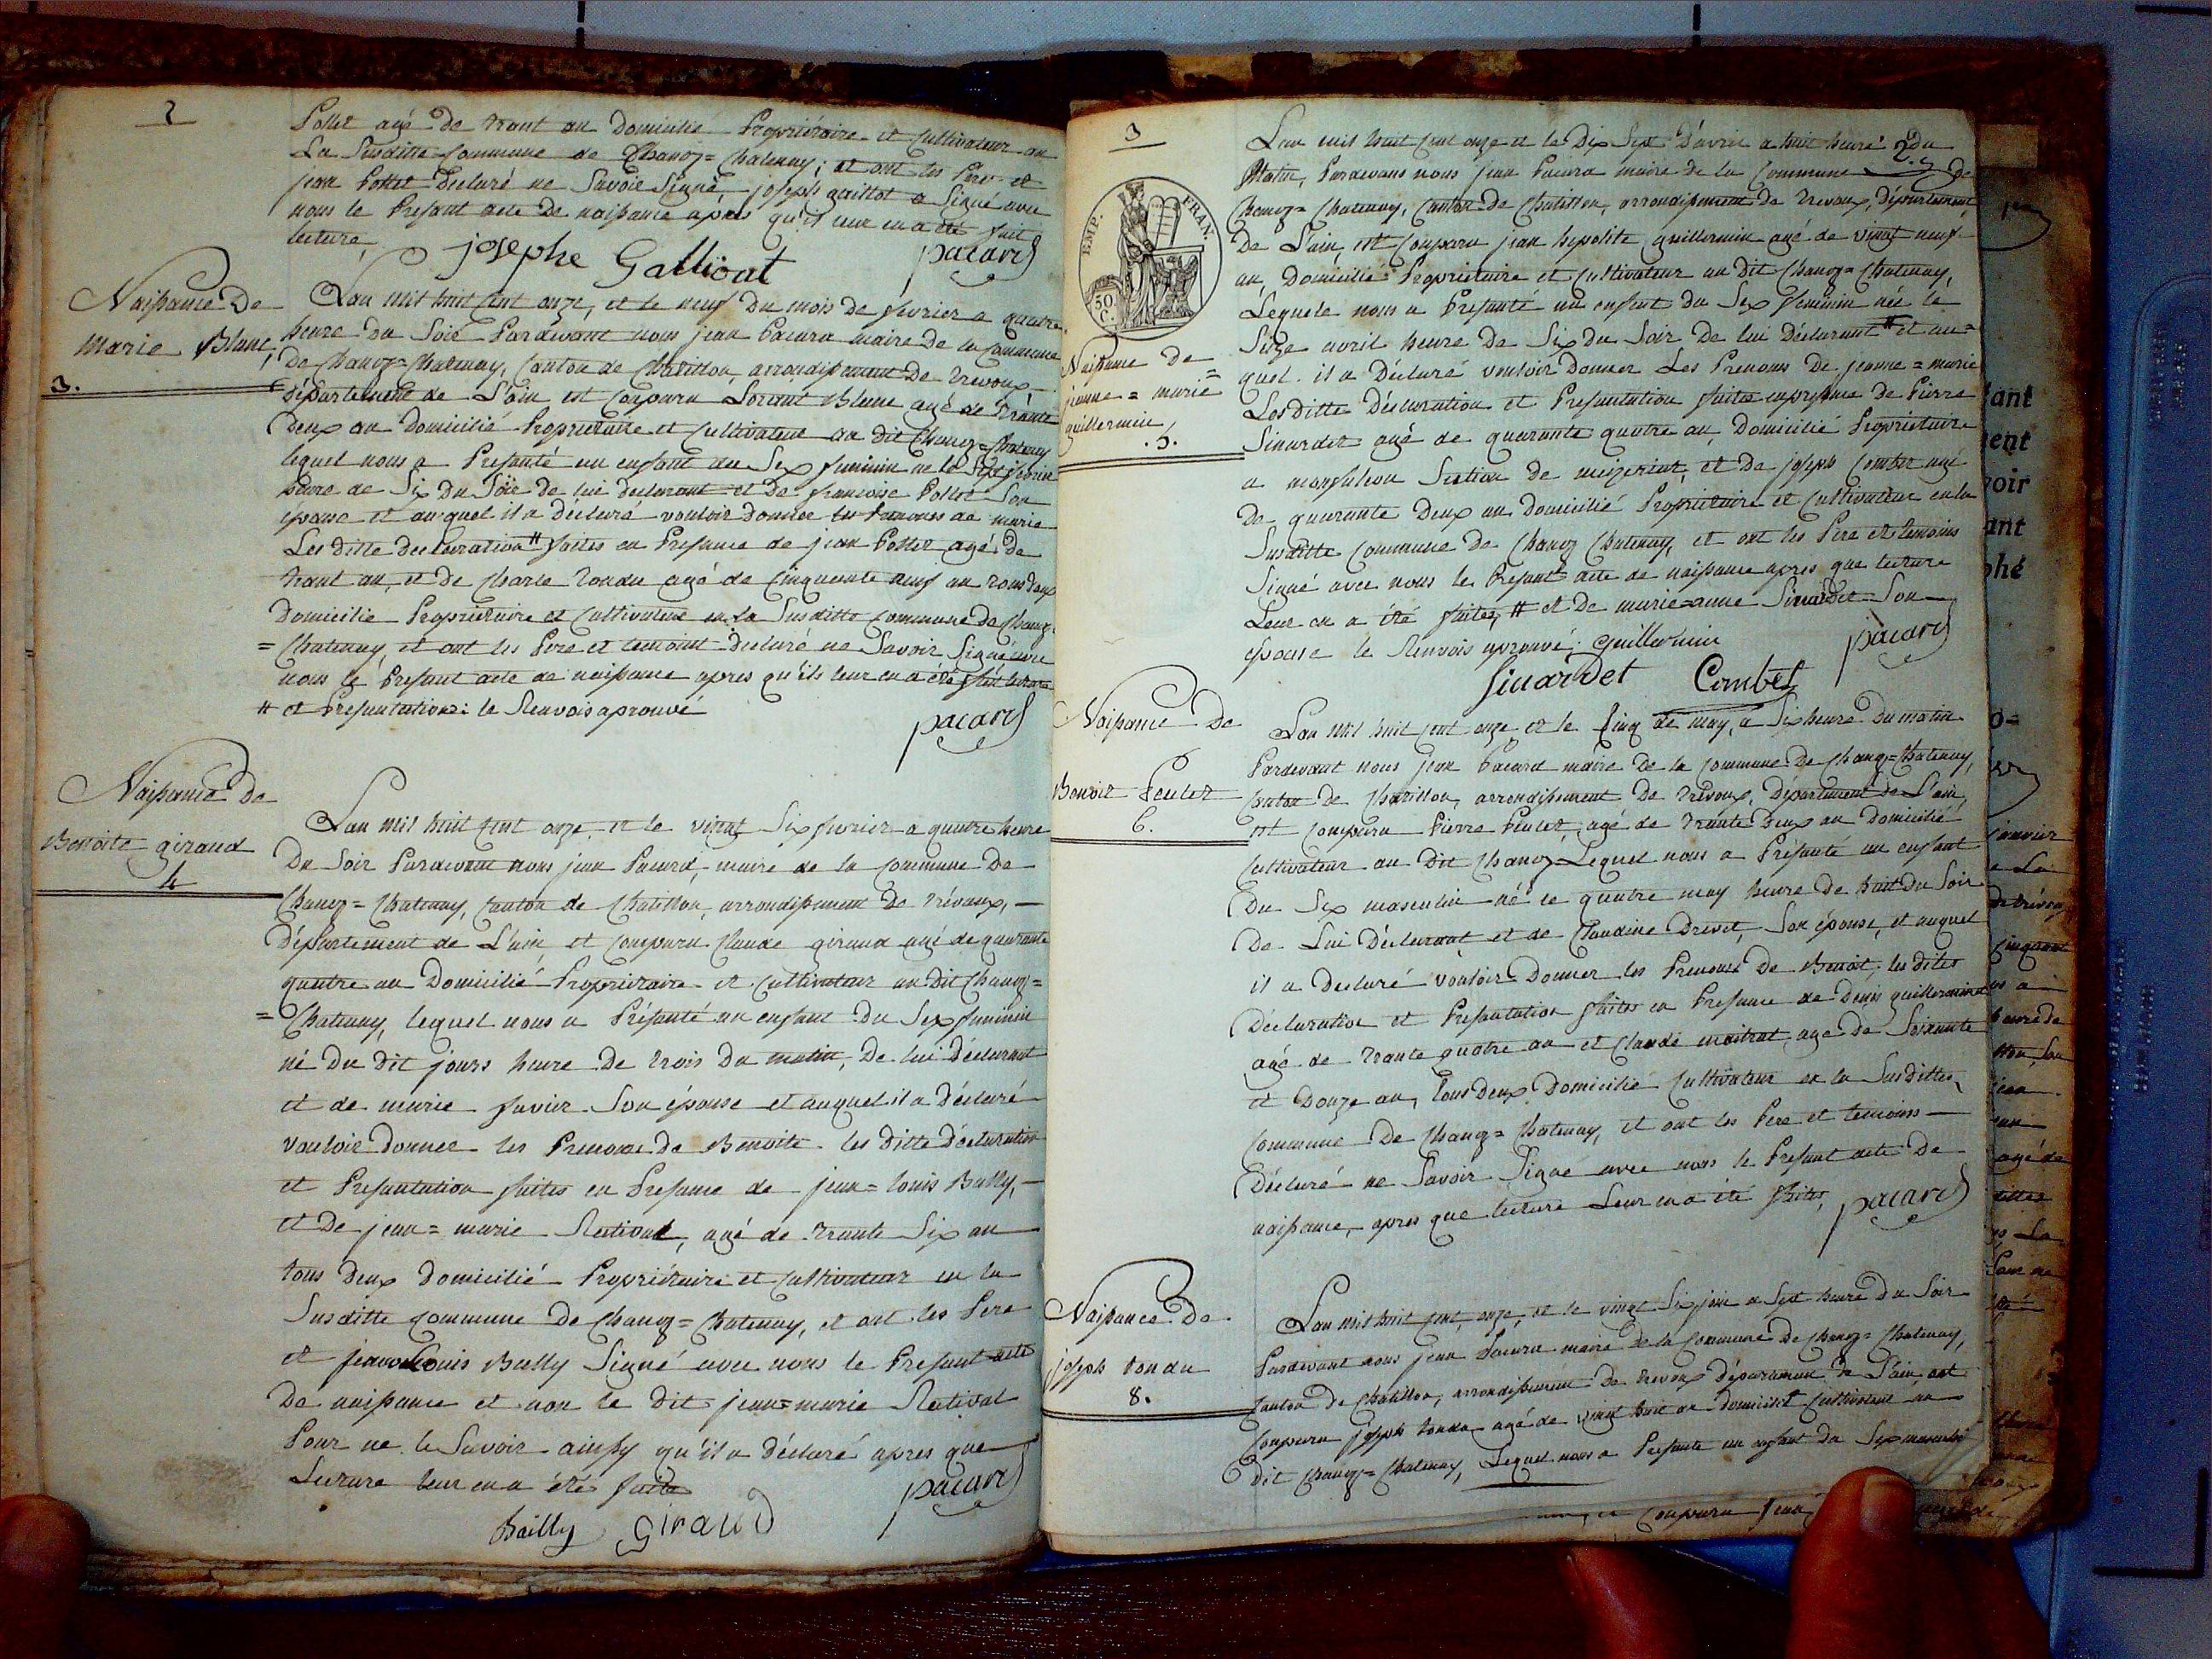 2
Pollet agé de trant an domicilié Propriétaire et Cultivateur en
La Susditte Commune de Chanoz=Chatenay; et ont les Pere et
jean Pollet Declaré ne Savoir Signé, joseph gaillot a Signé avec
nous le Presant acte de naissance apres qu'il leur en a été fait
lecture,
josephe Gallioat
pacard
Naissance De
Marie Blanc,
3.
Lan mil huit Cent onze, et le neuf du mois de fevrier a quatre
heure du Soir Pardevant nous jean Pacard maire de la Commune
De Chanoz=Chatenay, Canton de Chatillon, arrondissement De Trevoux
département de L'ain est Comparu Lorant Blanc agé de trante
Deux an Domicilié Propriétaire et Cultivateur au dit Chanoz=Chatenay
lequel nous a Presanté un enfant du Sex feminin né le Sept fevrier
heure de Six du Soir de lui declarant et De francoise Pollet Son
epouse et auquel il a déclaré vouloir donner les Prenoms de marie
Les ditte declaration # faites en Presance de jean Pollet agé de
trant an, et de Charle Tondu agé de Cinquante neuf an tous deux
Domicilié Propriétaire et Cultivateur en la Susditte Commune de Chanoz
=Chatenay, et ont les Pere et temoint declaré ne Savoir Signé avec
nous le Presant acte de naissance apres qu'ils leur en a été fait lecture
# et Presantation: le Renvois aprouvé
pacard
Naissance De
Benoite giraud
4
Lan mil huit Cent onze, et le vingt Six fevrier a quatre heure
Du Soir Pardevant nous jean Pacard, maire de la Commune De
Chanoz=Chatenay, Canton de Chatillon, arrondissement De Trévoux,
Département de L'ain, et Comparu Claude giraud agé de quarante
quatre an Domicilié Propriétaire et Cultivateur au dit Chanoz=
=Chatenay, lequel nous a Présanté un enfant Du Sex feminin
né Du dit jours heure De trois Du matin, De lui Déclarant
et de marie favier Son épouse et auquel il a Déclaré
vouloir Donner les Prenoms De Benoite les ditte Déclaration
et Presantation faites en Presance de jean=louis Bally,
et De jean=marie Rativat, agé de trante Six an
tous Deux Domicilié Propriétaire et Cultivateur en la
Susditte Commune De Chanoz=Chatenay, et ont les Pere
et jean Louis Bally Signé avec nous le Presant acte
De naissance et non le dit jean=marie Rativat
Pour ne le Savoir ainssy qu'il a Déclaré apres que
Lecture leur en a été faite
bailly giraud
pacard
3
2.
EMP. FRAN.
50 C.
Naissance De
jeanne=marie
guillermin,
.5.
Lan mil huit Cent onze et le Dix Sept D'avril a huit heure Du
Matin, Pardevans nous jean Pacard maire de la Commune De
Chanoz=Chatenay, Canton de Chatillon, arrondissement de Trevoux, Département
de L'ain, est Comparu jean hipolite guillermin agé de vingt neuf
an, Domicilié Propriétaire et Cultivateur au dit Chanoz=Chatenay,
Lequele nous a Presanté un enfant du Sex feminin née le
Seize avril heure de Six du Soir de lui Déclarant # et au=
quel il a Déclaré vouloir Donner Les Prenoms De jeanne=marie
Lesditte Déclaration et Presantation faites en presance De Pierre
Sinardet agé de quarante quatre an, Domicilié Propriétaire
a monfalcon Section de mezeriat, et de joseph Combet agé
De quarante Deux an Domicilié Propriétaire et Cultivateur en la
Susditte Commune de Chanoz Chatenay, et ont les Pere et temoins
Signé avec nous le Presant acte de naissance apres que lecture
Leur en a été faites, # et De marie=anne Sinardet Son
epouse le Renvois aprouvé. guillermin
pacard
Sinardet Combet
Naissance De
Benoit Peulet
6.
Lan mil huit Cent onze et le Cinq de may, a Six heure Du matin
Pardevant nous jean Pacard maire De la Commune De Chanoz=Chatenay,
Canton De Chatillon, arrondissement De Trévoux, Département de L'ain,
est Comparu Pierre Peulet, agé de trante Deux an Domicilié
Cultivateur au Dit Chanoz Lequel nous a Présanté un enfant
Du Sex masculin né le quatre may heure De huit Du Soir
De Lui Déclarant, et de Claudine Drevet, Son épouse, et auquel
il a declaré vouloir Donner les Prenoms De Benoit, les dites
Déclaration et Presantation faites en Presance de Denis guillermin
agé de trante quatre an et Claude maitrat, agé De Soixante
et Douze an, tous Deux Domicilié Cultivateur en la Susdittes
Commune De Chanoz=Chatenay, et ont les Pere et temoins
Déclaré ne Savoir Signé avec nous le Presant acte De
naissance, apres que lecture Leur en a été faites,
pacard
Naissance De
joseph tondu
8.
Lan mil huit Cent, onze, et le vingt Six juin a Sept heure Du Soir
Pardevant nous jean Pacard maire de la Commune De Chanoz=Chatenay,
Canton De Chatillon, arrondissement De Trevoux département De L'ain, est
Comparu joseph tondu agé de vingt huit an domicilié Cultivateur au
dit Chanoz=Chatenay, Lequel nous a Présanté un enfant du Sex masculin
Comparu jean